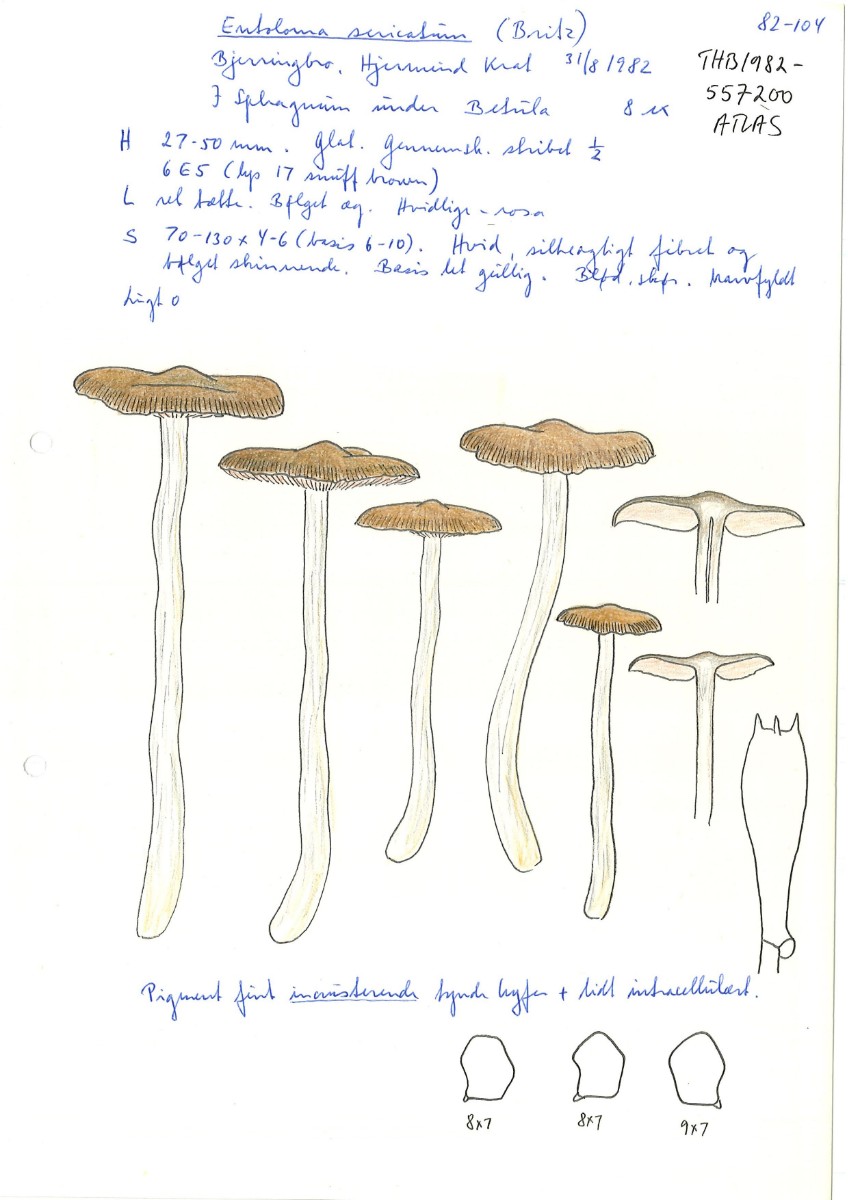 Entoloma sericatum (Britz) 82-104
Bjerringbro, Hjermind Krat 31/8 1982 THB1982-
557200
ATLAS
I Sphagnum under Betula 8 ex
H 27-50 mm. Glat. Gennemsk. stribet 1/2
6E5 (lys 17 snuff brown)
L ret tætte. Bølget æg. Hvidlige - rosa
S 70-130 x 4-6 (basis 6-10). Hvid, silkeagtigt fibret og
bølget skinnende. Basis let gullig. Marvfyldt
Lugt 0
Pigment fint incrusterende tynde hyfer + lidt intracellulært.
8x7 8x7 9x7